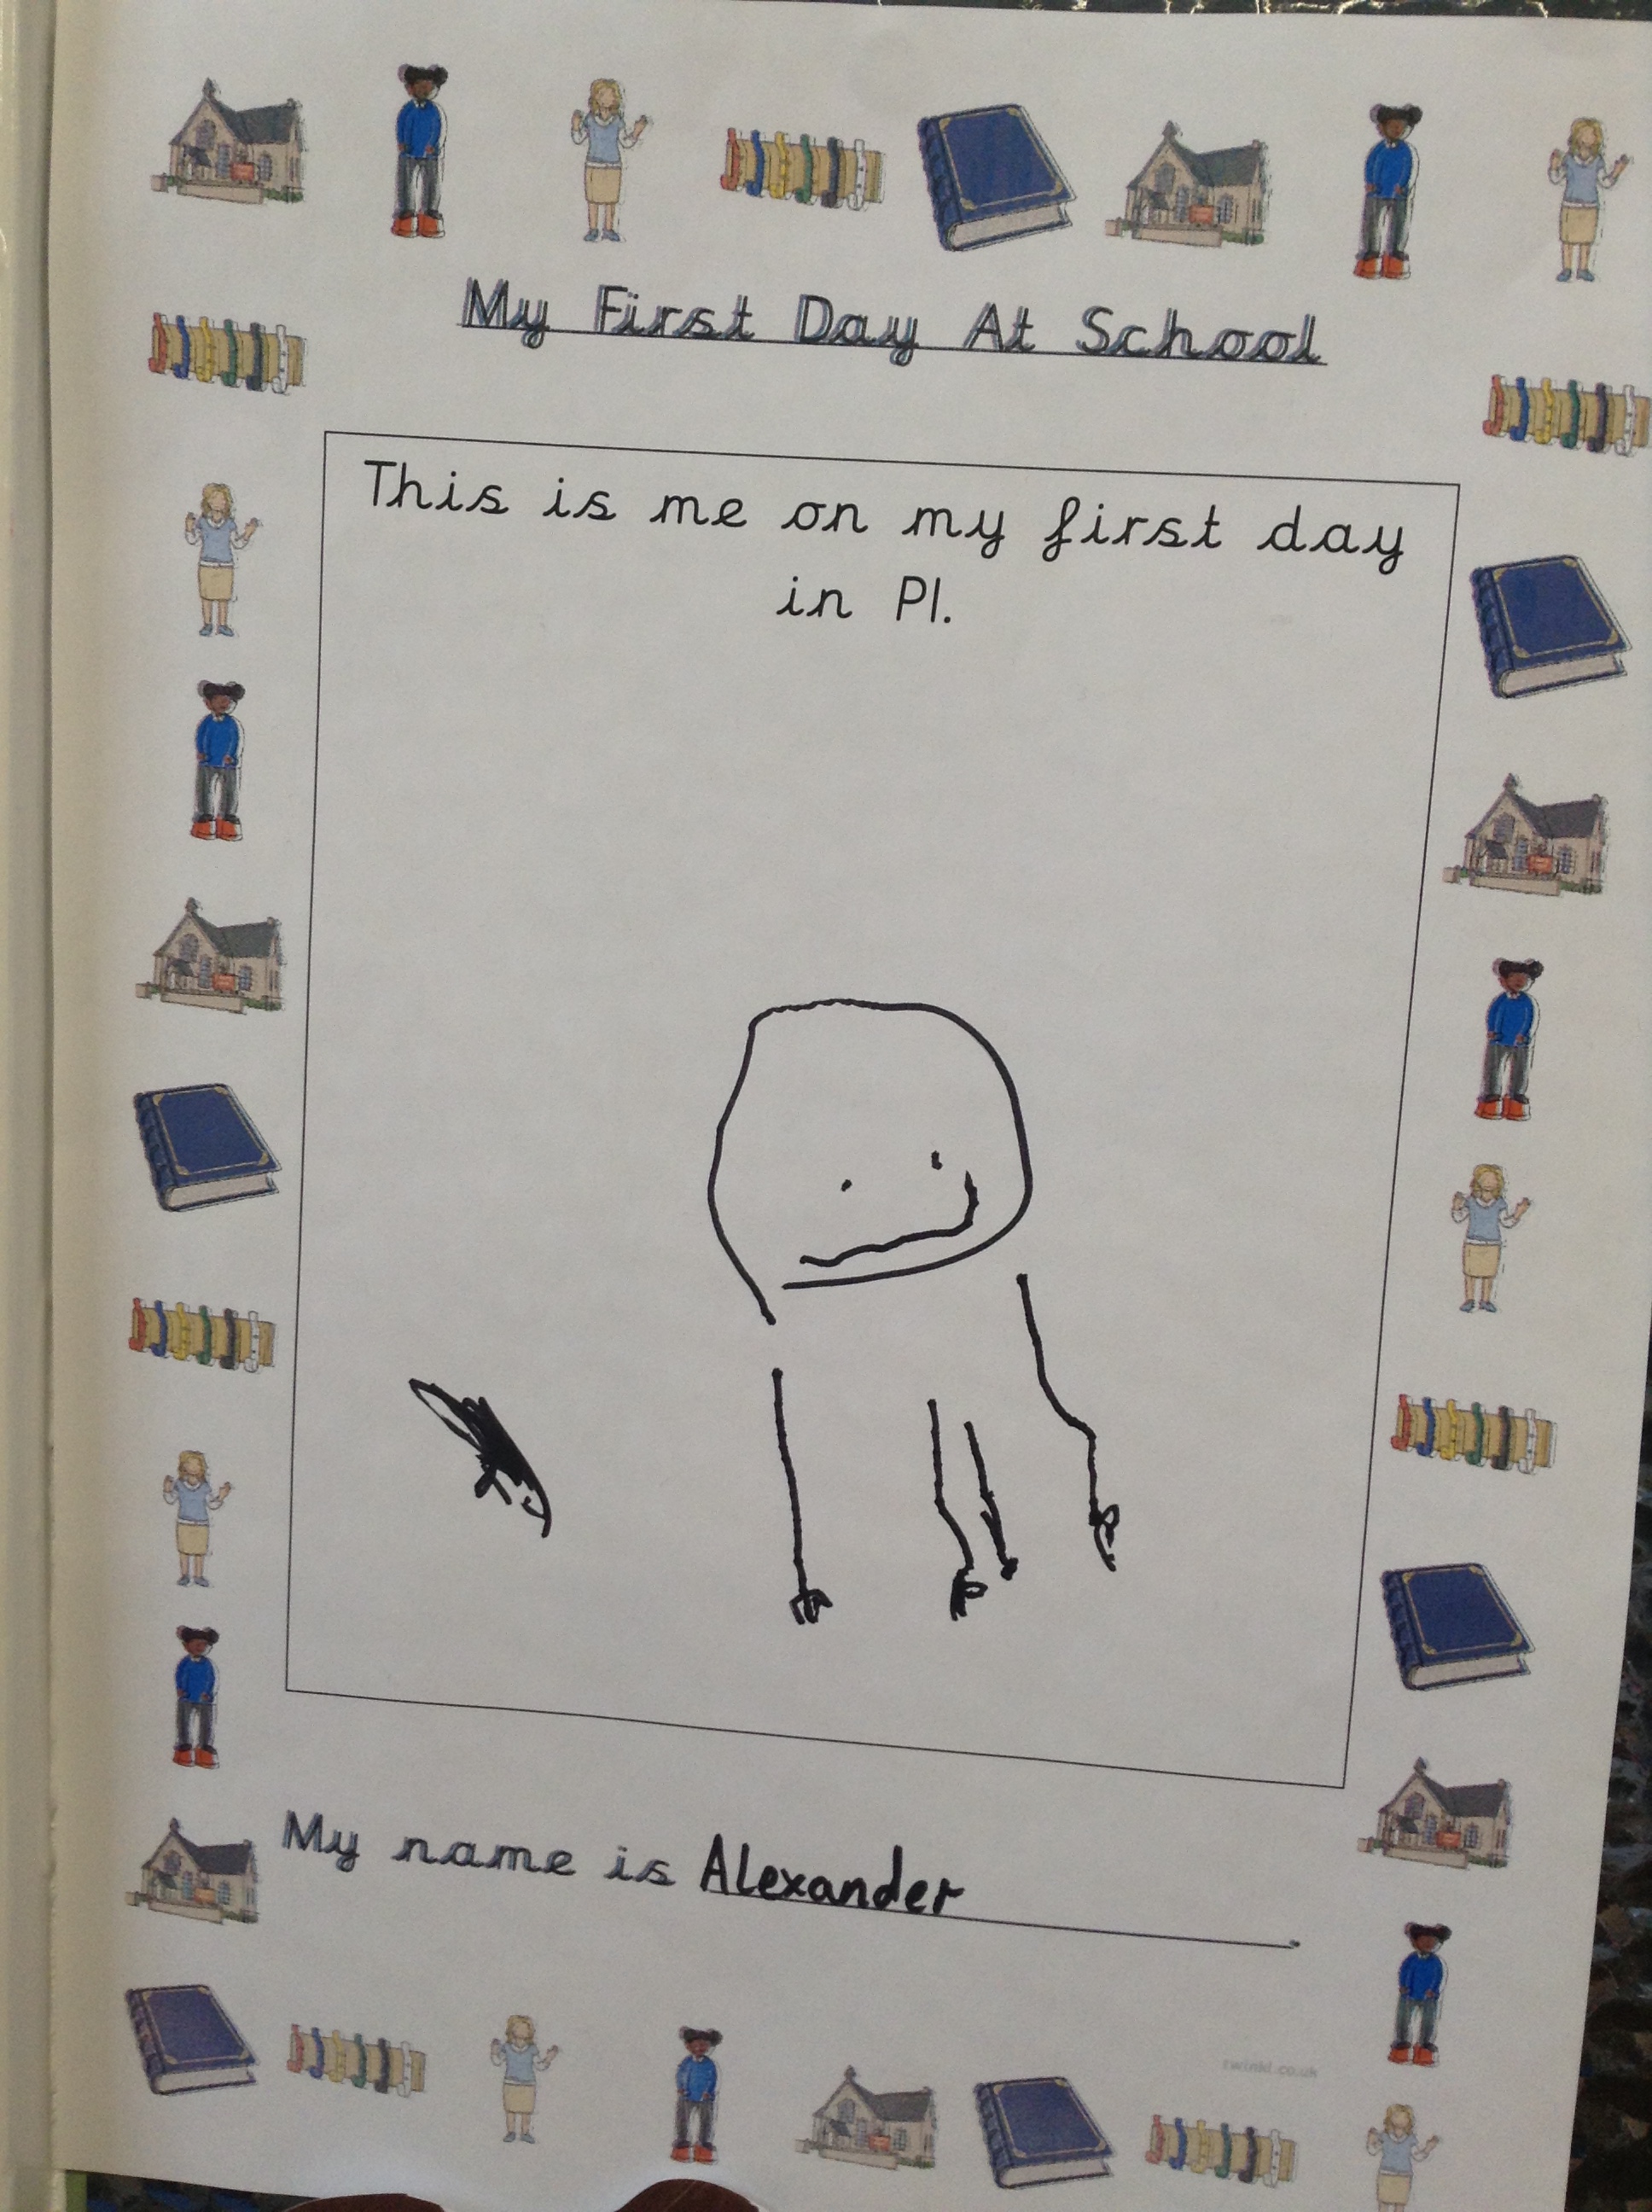 My First Day At School
This is me on my first day
in P1.
My name is Alexander.
twinkl.co.uk